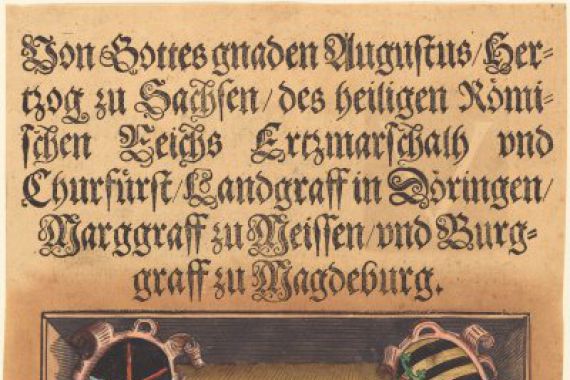 Von Gottes gnaden Augustus/Her-
tzog zu Sachsen/des heiligen Römi-
schen Reichs Ertzmarschalh vnd
Churfürst/Landgraff in Döringen/
Marggraff zu Meissen/vnd Burg-
graff zu Magdeburg.